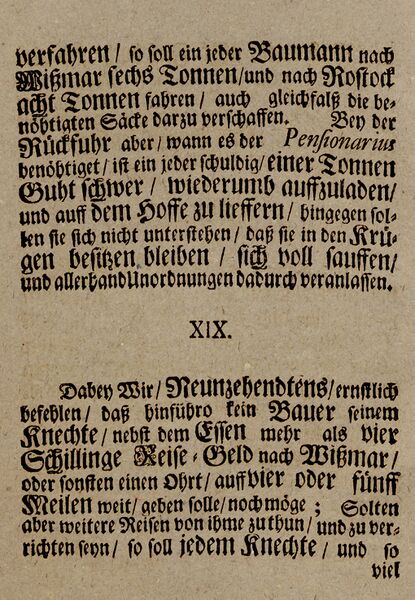 verfahren / so soll ein jeder Baumann nach
Wißmar sechs Tonnen / und nach Rostock
acht Tonnen fahren / auch gleichfalß die be-
nöhtigten Säcke darzu verschaffen. Bey der
Rückfuhr aber / wann es der Pensionarius
benöhtiget / ist ein jeder schuldig / einer Tonnen
Guht schwer / wiederumb auffzuladen /
und auff dem Hoffe zu lieffern / hingegen sol-
len sie sich nicht unterstehen / daß sie in den Krü-
gen besitzen bleiben / sich voll sauffen /
und allerhand Unordnungen dadurch veranlassen.
XIX.
Dabey Wir / Neunzehendtens / ernstlich
befehlen / daß hinführo kein Bauer seinem
Knechte / nebst dem Essen mehr als vier
Schillinge Reise-Geld nach Wißmar /
oder sonsten einen Ohrt / auff vier oder fünff
Meilen weit / geben solle / noch möge ; Solten
aber weitere Reisen von ihme zu thun / und zu ver-
richten seyn / so soll jedem Knechte / und so
viel